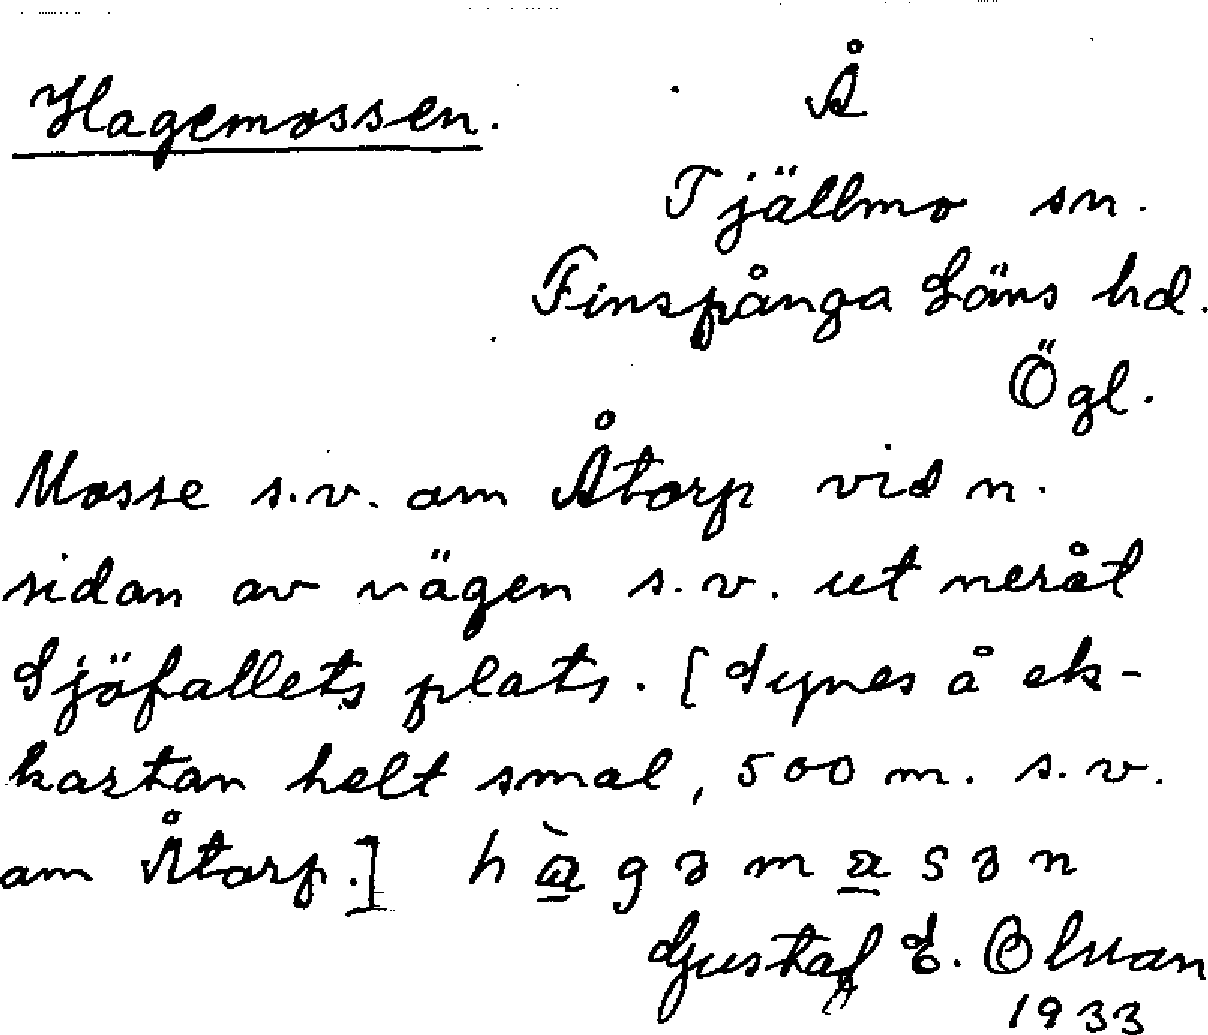 Hagemossen.
Å
Tjällmo sn.
Finspånga Läns hd.
Ögl.
Mosse s.v. om Åtorp vid n.
sidan av vägen s.v. ut neråt
Sjöfallets plats. [Synes å ek-
kartan helt smal, 500 m. s.v.
om Åtorp.] h
Gustaf E. Olsson
1933